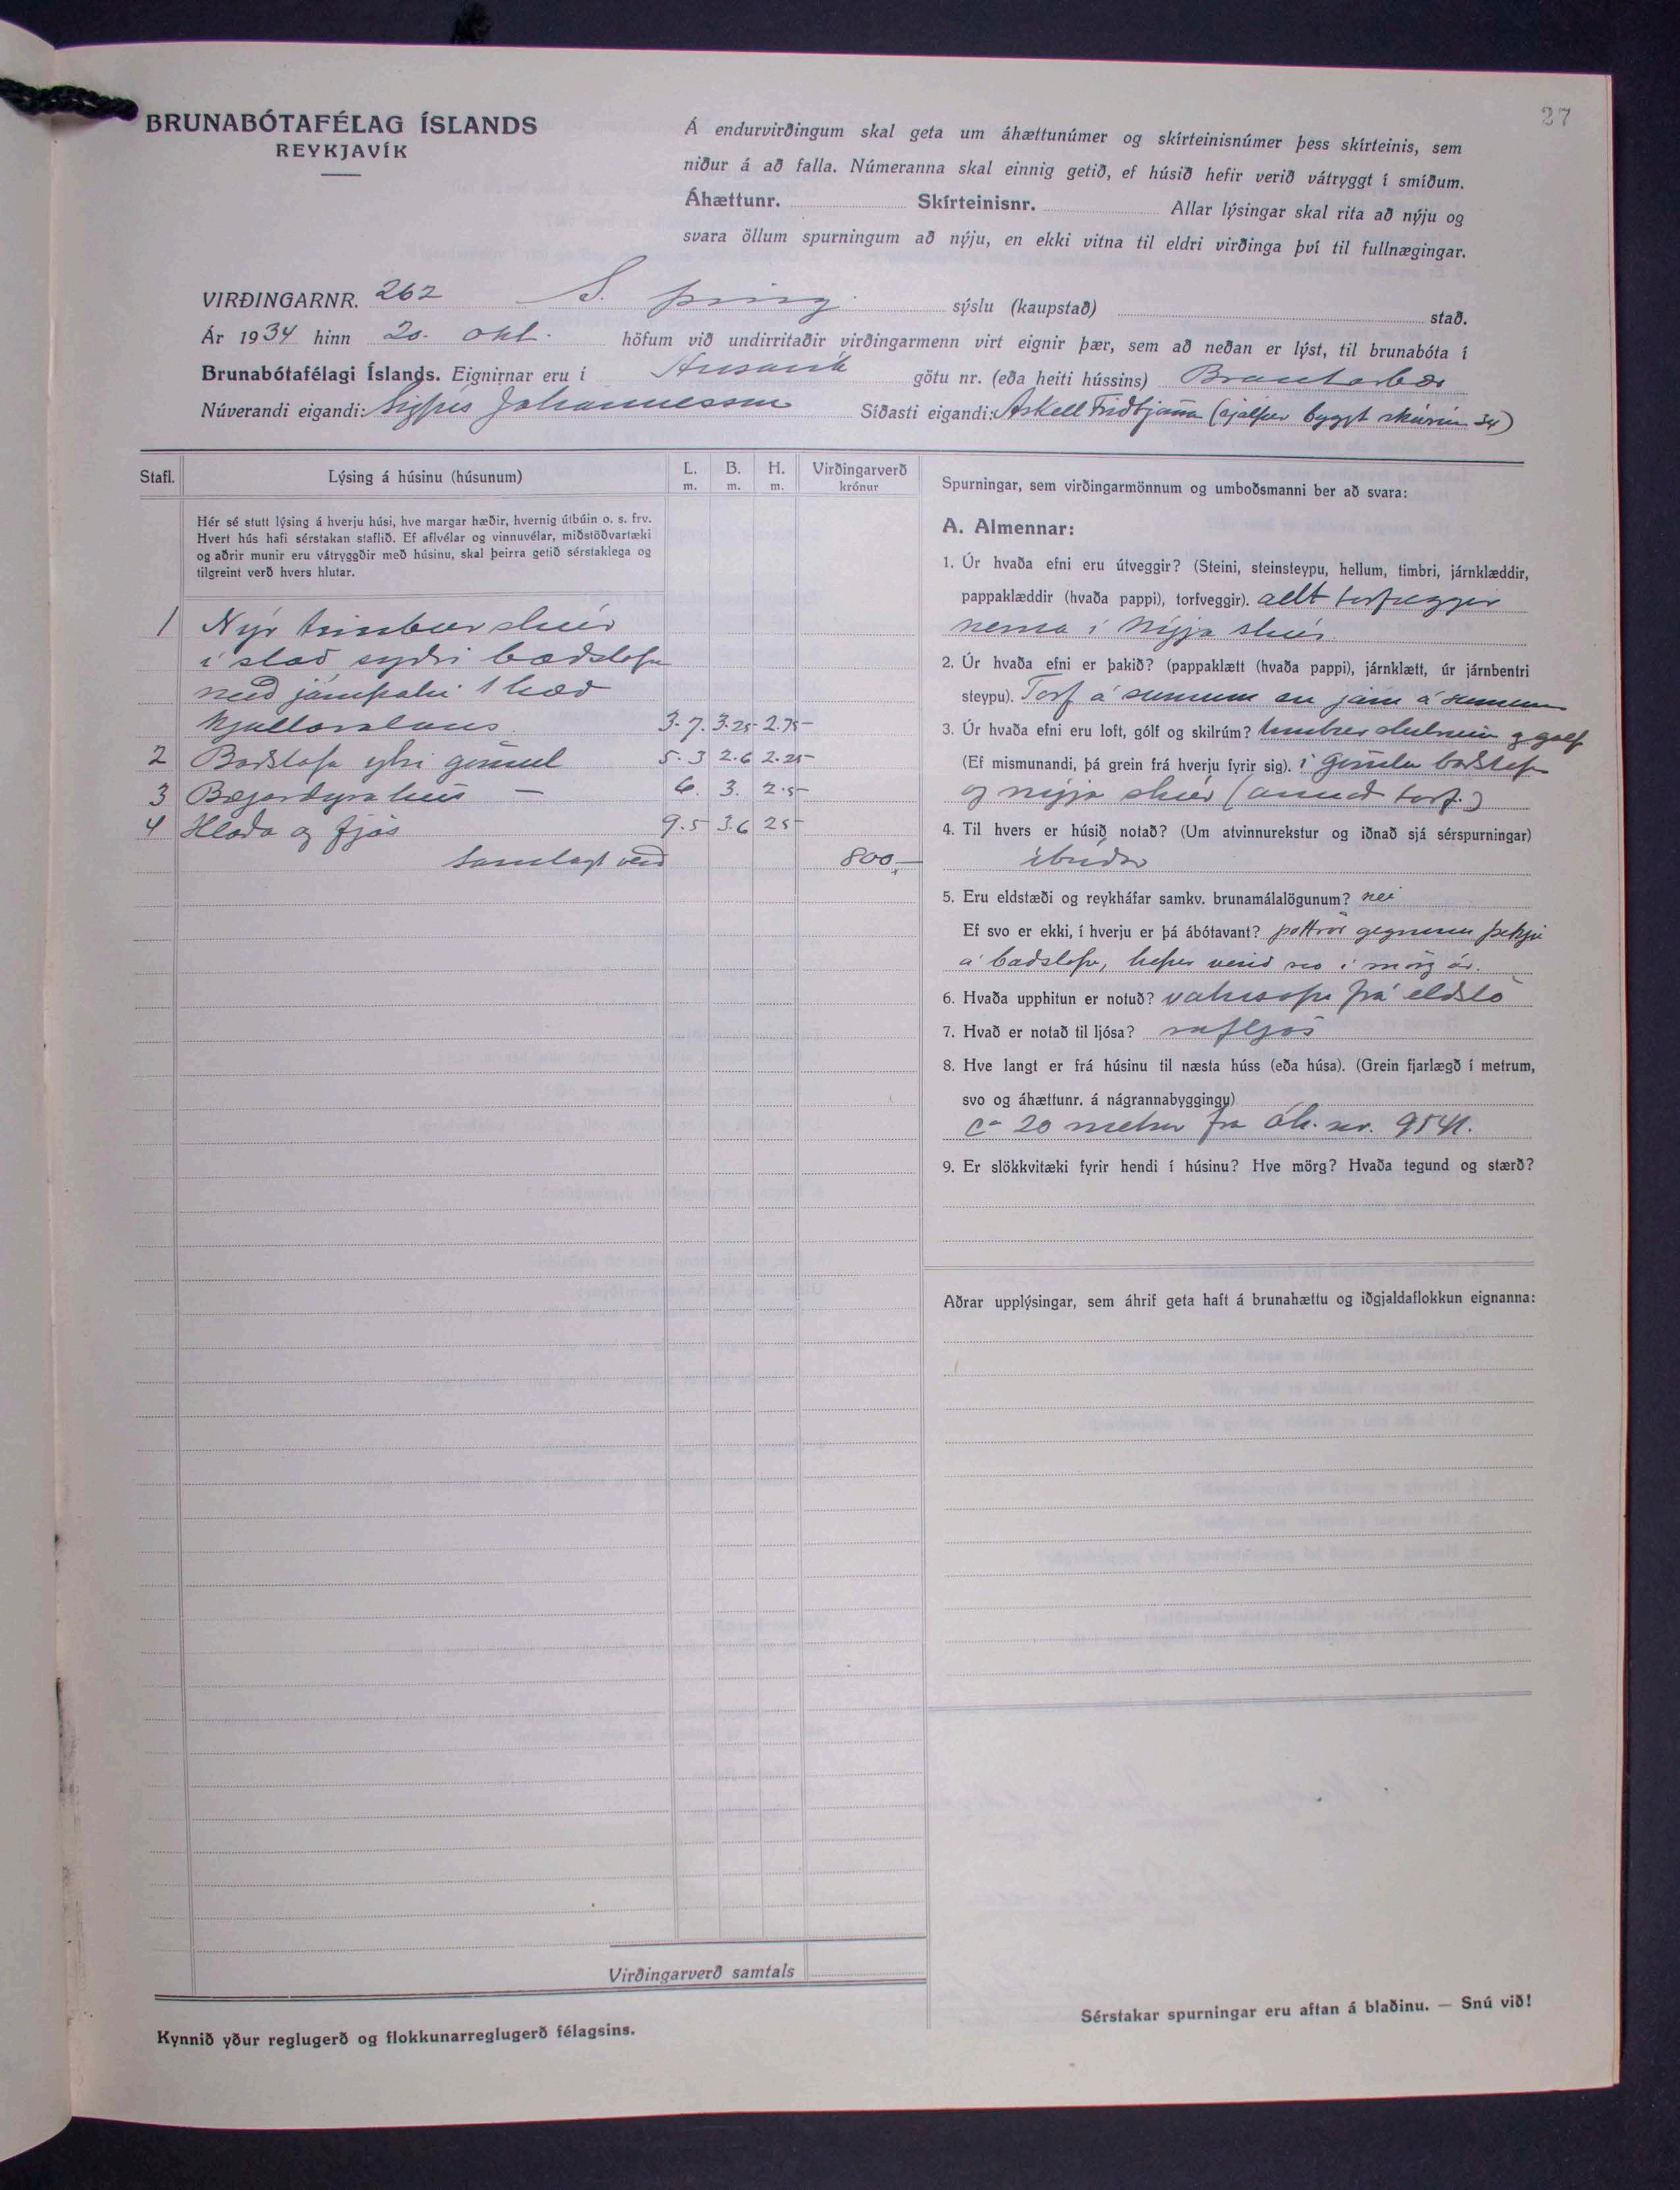 27
BRUNABÓTAFÉLAG ÍSLANDS
REYKJAVÍK
Á endurvirðingum skal geta um áhættunúmer og skírteinisnúmer þess skírteinis, sem
niður á að falla. Númeranna skal einnig getið, ef húsið hefir verið vátryggt í smíðum.
Áhættunr. Skírteinisnr. Allar lýsingar skal rita að nýju og
svara öllum spurningum að nýju, en ekki vitna til eldri virðinga því til fullnægingar.
VIRÐINGARNR. 262 S. þing. sýslu (kaupstað) stað.
Ár 1934 hinn 20. okt. höfum við undirritaðir virðingarmenn virt eignir þær, sem að neðan er lýst, til brunabóta í
Brunabótafélagi Íslands. Eignirnar eru í Húsavík götu nr. (eða heiti hússins)
Núverandi eigandi: Sigfús Jóhannesson Síðasti eigandi: Askell Friðbjarna (sjálfur byggt skúrin 34)
Stafl. Lýsing á húsinu (húsunum) L. m. B. m. H. m. Virðingarverð krónur
Hér sé stutt lýsing á hverju húsi, hve margar hæðir, hvernig útbúin o. s. frv.
Hvert hús hafi sérstakan staflið. Ef aflvélar og vinnuvélar, miðstöðvartæki
og aðrir munir eru vátryggðir með húsinu, skal þeirra getið sérstaklega og
tilgreint verð hvers hlutar.
1 Nýr timbur skúr
í stað syðri baðstofu
með járnþaki 1 hæð
kjallaralaus 3.7. 3.25 2.75
2 Baðstofa ytri gömul 5.3 2.6 2.25
3 Bæjardyra hús — 6. 3. 2.5
4 Hlaða og fjós 9.5 3.6 25
Samlagt verð 800,-
Virðingarverð samtals
Kynnið yður reglugerð og flokkunarreglugerð félagsins.
Spurningar, sem virðingarmönnum og umboðsmanni ber að svara:
A. Almennar:
1. Úr hvaða efni eru útveggir? (Steini, steinsteypu, hellum, timbri, járnklæddir,
pappaklæddir (hvaða pappi), torfveggir). allt torfveggir
nema í nýja skúr.
2. Úr hvaða efni er þakið? (pappaklætt (hvaða pappi), járnklætt, úr járnbentri
steypu). Torf á sumum en járn á sumum
3. Úr hvaða efni eru loft, gólf og skilrúm? timbur skilrúm og gólf
(Ef mismunandi, þá grein frá hverju fyrir sig). í gömlu baðstofu
og nýja skúr (annað torf.)
4. Til hvers er húsið notað? (Um atvinnurekstur og iðnað sjá sérspurningar)
íbúðar
5. Eru eldstæði og reykháfar samkv. brunamálalögunum? nei
Ef svo er ekki, í hverju er þá ábótavant? pottrör gegnum þekju
á baðstofu, hefur verið svo í mörg ár.
6. Hvaða upphitun er notuð? frá eldstó
7. Hvað er notað til ljósa? rafljós
8. Hve langt er frá húsinu til næsta húss (eða húsa). (Grein fjarlægð í metrum,
svo og áhættunr. á nágrannabyggingu)
ca 20 metrar frá áh. nr. 9541.
9. Er slökkvitæki fyrir hendi í húsinu? Hve mörg? Hvaða tegund og stærð?
Aðrar upplýsingar, sem áhrif geta haft á brunahættu og iðgjaldaflokkun eignanna:
Sérstakar spurningar eru aftan á blaðinu. — Snú við!